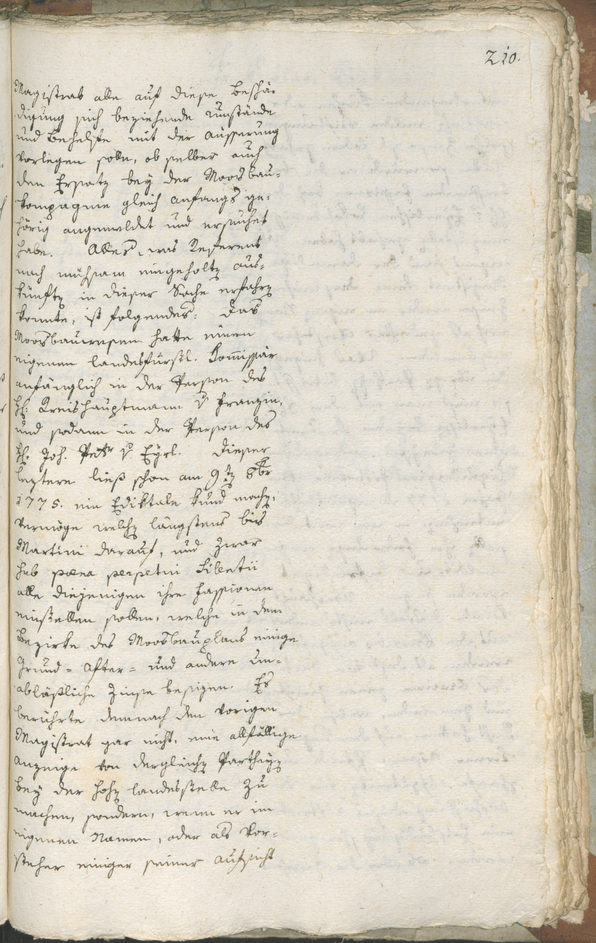 210.
Magistrat alle auf diese Beschä-
digung sich beziehende Umstände
und Behelfe mit der Äusserung
vorlegen solle, ob selber auch
den Ersatz bey der Moosbau-
kompagnie gleich anfangs ge-
hörig angemeldet und ersuchet
habe. Alles, was Referent
nach mühsam eingeholten Aus-
künften in dieser Sache erfahren
konnte, ist folgendes: Das
Moosbauwesen hatte einen
eigenen landesfürstl. Kommissär
anfänglich in der Person des
H: Kreishauptmann v
und sodann in der Person des
H: Joh. Petr v Eyrl. Dieser
leztere ließ schon am 9ten 8br
1775. ein Ediktale kund machen,
vermöge welchen längstens bis
Martini darauf, und zwar
sub poena perpetui silentii
alle diejenigen ihre Fassionen
einstellen sollen, welche in dem
Bezirke des Moosbauplans einige
Grund- After- und andere un-
ablößliche Zinse besizen. Es
berührte demnach den vorigen
Magistrat gar nicht, eine allfällige
Anzeige von dergleichen Partheyen
bey der hohen Landesstelle zu
machen, sondern, wenn er im
eigenen Namen, oder als Vor-
steher einiger seiner Aufsicht